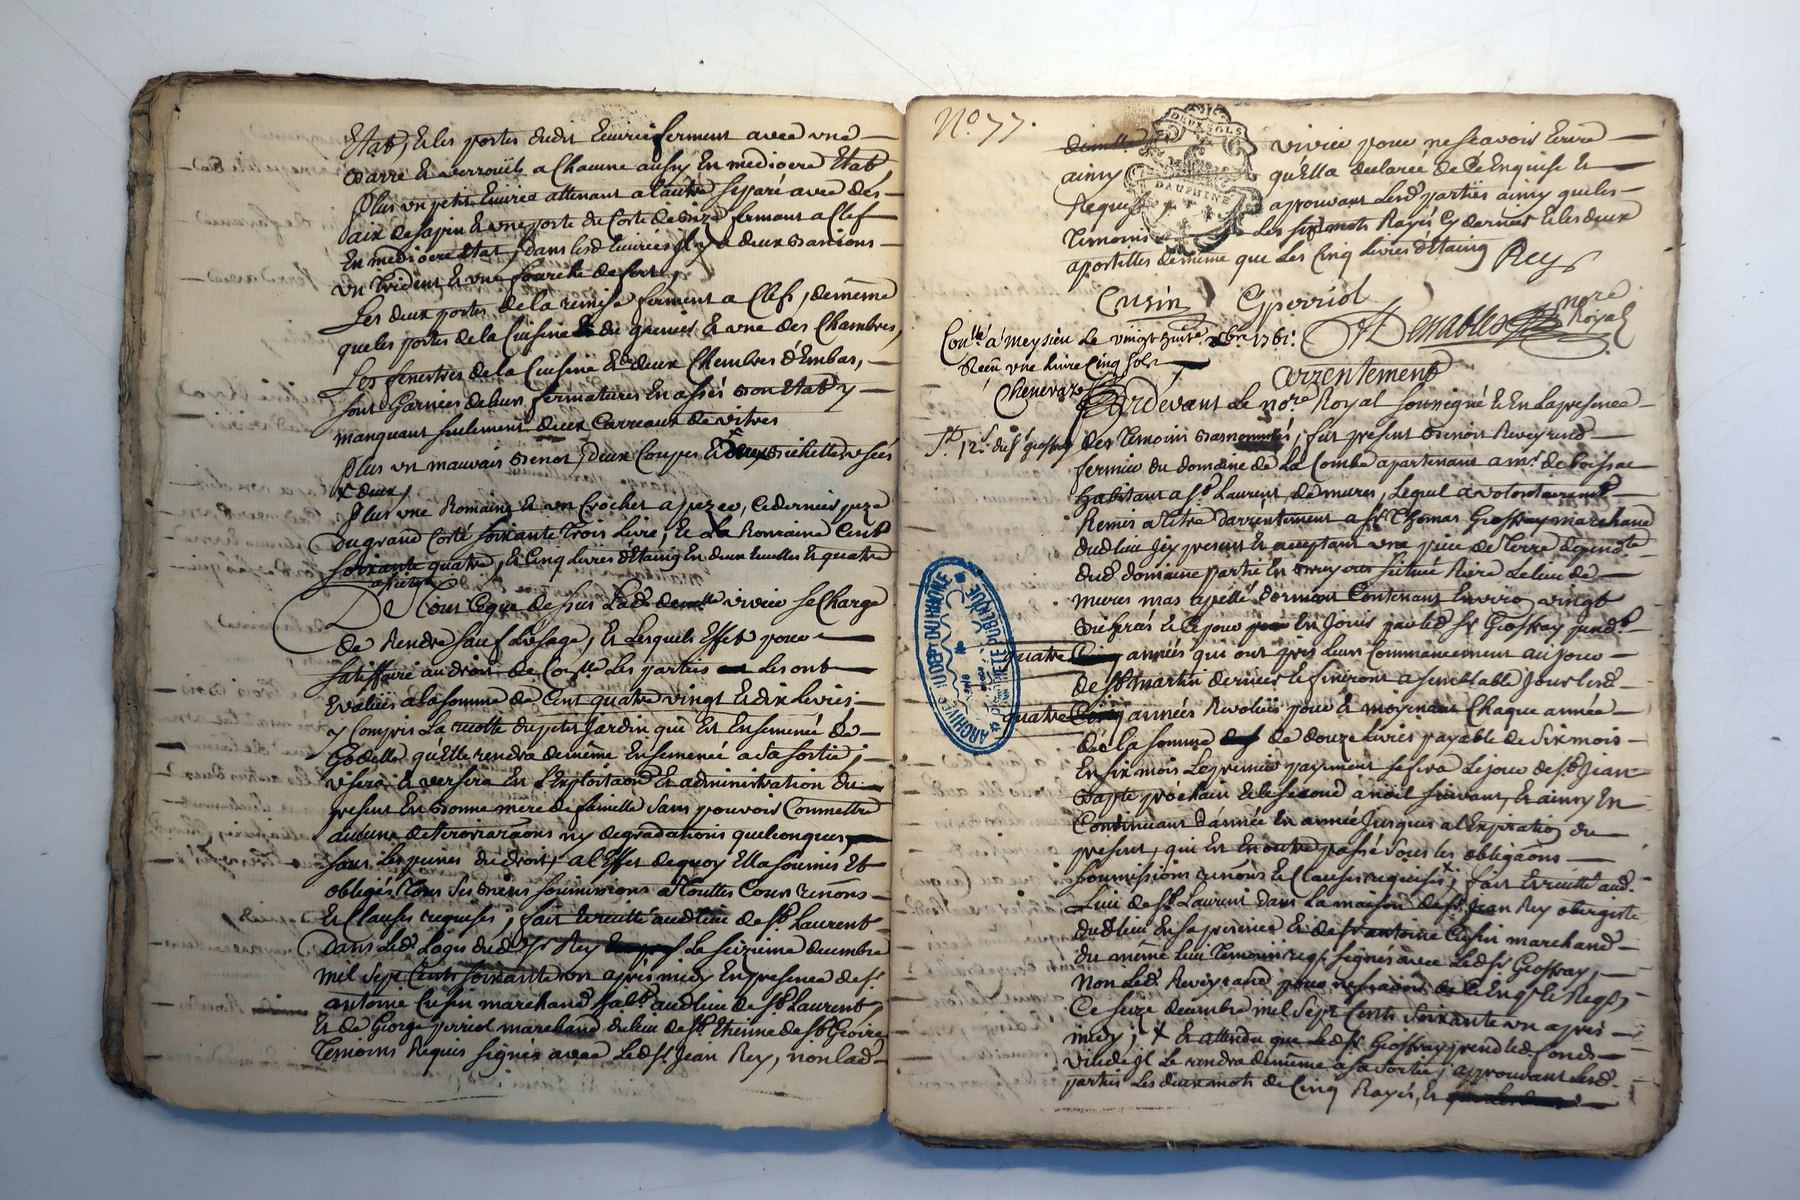 Etat, Et les portes dudit Ecurie ferment avec une
Barre Et verrouils a Chacune aussy En mediocre Etat
Plus un petit Ecurie attenant a l'autre separé avec des
aix de sapin Et une porte du Coté de Bize fermant a Clef
En mediocre Etat, dans lesd Ecuries Il y a deux
un trident Et une fourche de fert,
Les deux portes de la remise ferment a Clef, demême
que les portes de la Cuisine Et du grenier Et une des Chambres,
Les fenestres de la Cuisine Et deux Chambres d'Embas,
sont Garnies de leurs fermatures En assés bon Etat y
manquant seulement deux Carreaux de vitres
Plus un mauvais Benot, deux Coupes Et usées
x deux
Plus une Romaine Et un Crochet a pezer, Ce dernier peze
du grand Coté soixante trois Livre, Et La Romaine Cent
soixante quatre, Et Cinq Livres d'Etaing En deux Et quatre
assiettes
De Tout Ce que dessus Lad. demlle vivier se Charge
de Rendre sauf L'usage, Et Lesquels Effet pour
satisffaire au droit de Conlle Les parties Les ont
Evalüés a la somme de Cent quatre vingt Et dix Livres,
y Compris La du petit Jardin qui Est Ensemencé de
qu'Elle rendra demême Ensemencé a sa sortie,
usera Et versera En L'Exploitaon Et administration du
present En Bonne mere de famille sans pouvoir Commettre
aucune deterioraons ny degradations quelconques,
sous Les peines du droit, a l'Effet de quoy Elle a soumis Et
obligés Tous ses Biens soumissions a Touttes Cours renons
Et Clauses requises, fait Et recitté audt lieu de St. Laurent
dans Led. Logis dud. Sr Rey Le seizieme decembre
mil sept Cents soixante un apres midy En presence de Sr.
antoine Cusin marchand habt. audt lieu de St. Laurent
Et de George perriol marchand du lieu de St. Etienne de St. Geoirs
Temoins Requis signés avec Led. Sr. Jean Rey, non lad.
No. 77.
DEUX SOLS
DAUPHINE
demlle vivier pour ne sçavoir Ecrire
ainsy qu'Ella declarée de Ce Enquise Et
Requise aprouvant Lesd. parties ainsy que les
Temoins Les six mots Rayés Cy dernier Et les deux
apostilles demême que Les Cinq Livres d'Etaing Rey
Cusin Gperriol
Denables nore Royal
Conllé a meysieu Le vingt huit xbre 1761.
Reçu une Livre Cinq sols
Chenevaz
arzentement
Pardevant Le nore. Royal soussigné Et En La presence
des Temoins Basnommés, fut present Benoit Reveyrand
fermier du domaine de La Combe apartenant a Mr. de boissac
habitant a St. Laurent de mures, Lequel a volontairemt
Remis a titre darzentement a Sr Thomas Geoffray marchand
dudt lieu Jcy present Et acceptant une piece de Terre dependte
dud. domaine partie En Situé Riere Le lieu de
mures mas apellé dormont Contenant Environ vingt
Bicherés Et Ce pour En Jouir par led. Sr Geoffray pendt
quatre années qui ont pris Leur Commencement au jour
de St. martin dernier Et finiront a semblable Jour Lesd.
quatre années Revolües pour Et moyenant Chaque année
de La somme de douze Livres payable de six mois
En six mois Le premier payement se fera Le jour de St. Jean
Bapte prochain Et le second a noel suivant, Et ainsy En
Continuant d'année En année Jusques a l'Expiration du
present, qui Est Enoutre passé sous les obligaons
soumissions renons Et Clauses requises, x fait Et recitté aud.
Lieu de St. Laurent dans La maison de Sr. Jean Rey obergiste
dudt lieu En sa presence Et de Sr antoine Cusin marchand
du même lieu Temoins reqs. signés avec Led. Sr Geoffray,
non Led. Reveyrand pour ne sçavoir de Ce Enqs. Et Reqs,
Ce seize decembre mil sept Cents soixante un apres
midy, x Et attendu que Led. Sr Geoffray prend led. fonds
vuide Jl Le rendra demême a sa sortie, approuvant Lesd.
parties Les deux mots de Cinq Rayés, Et
quatre
quatre
ARCHIVES DU DEPT DU RHONE
PROPRIETE PUBLIQUE